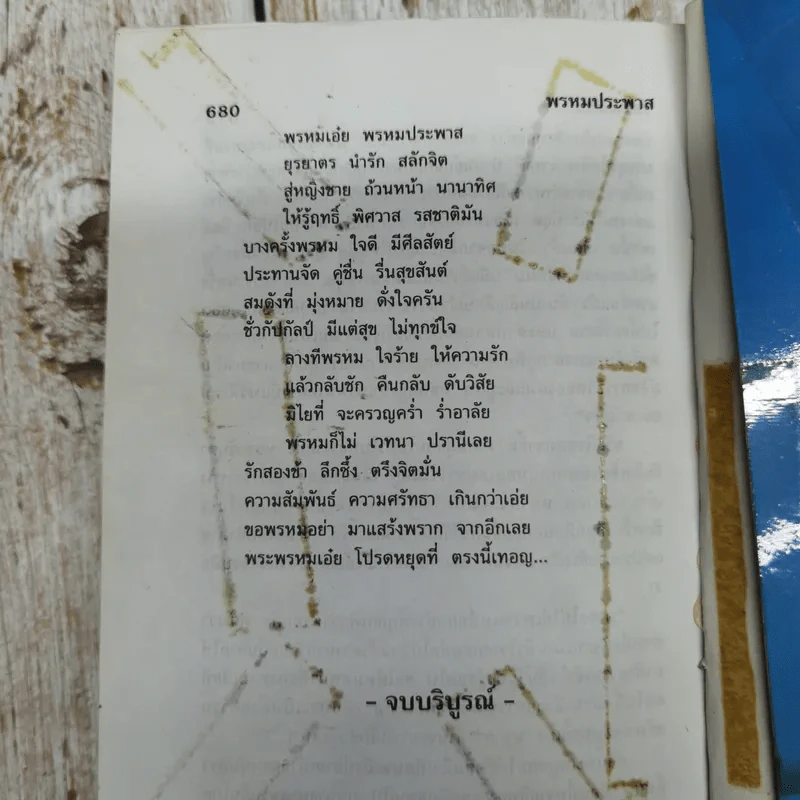 680
พรหมประพาส
พรหมเอ๋ย พรหมประพาส
ยุรยาตร นำรัก สลักจิต
สู่หญิงชาย ถ้วนหน้า นานาทิศ
ให้รู้ฤทธิ์ พิศวาส รสชาติมัน
บางครั้งพรหม ใจดี มีศีลสัตย์
ประทานจัด คู่ชื่น รื่นสุขสันต์
สมดังที่ มุ่งหมาย ดั่งใจครัน
ชั่วกัปกัลป์ มีแต่สุข ไม่ทุกข์ใจ
ลางทีพรหม ใจร้าย ให้ความรัก
แล้วกลับชัก คืนกลับ ดับวิสัย
มิไยที่ จะครวญคร่ำ ร่ำอาลัย
พรหมก็ไม่ เวทนา ปรานีเลย
รักสองข้า ลึกซึ้ง ตรึงจิตมั่น
ความสัมพันธ์ ความศรัทธา เกินกว่าเอ่ย
ขอพรหมอย่า มาแสร้งพราก จากอีกเลย
พระพรหมเอ๋ย โปรดหยุดที่ ตรงนี้เทอญ...
- จบบริบูรณ์ -